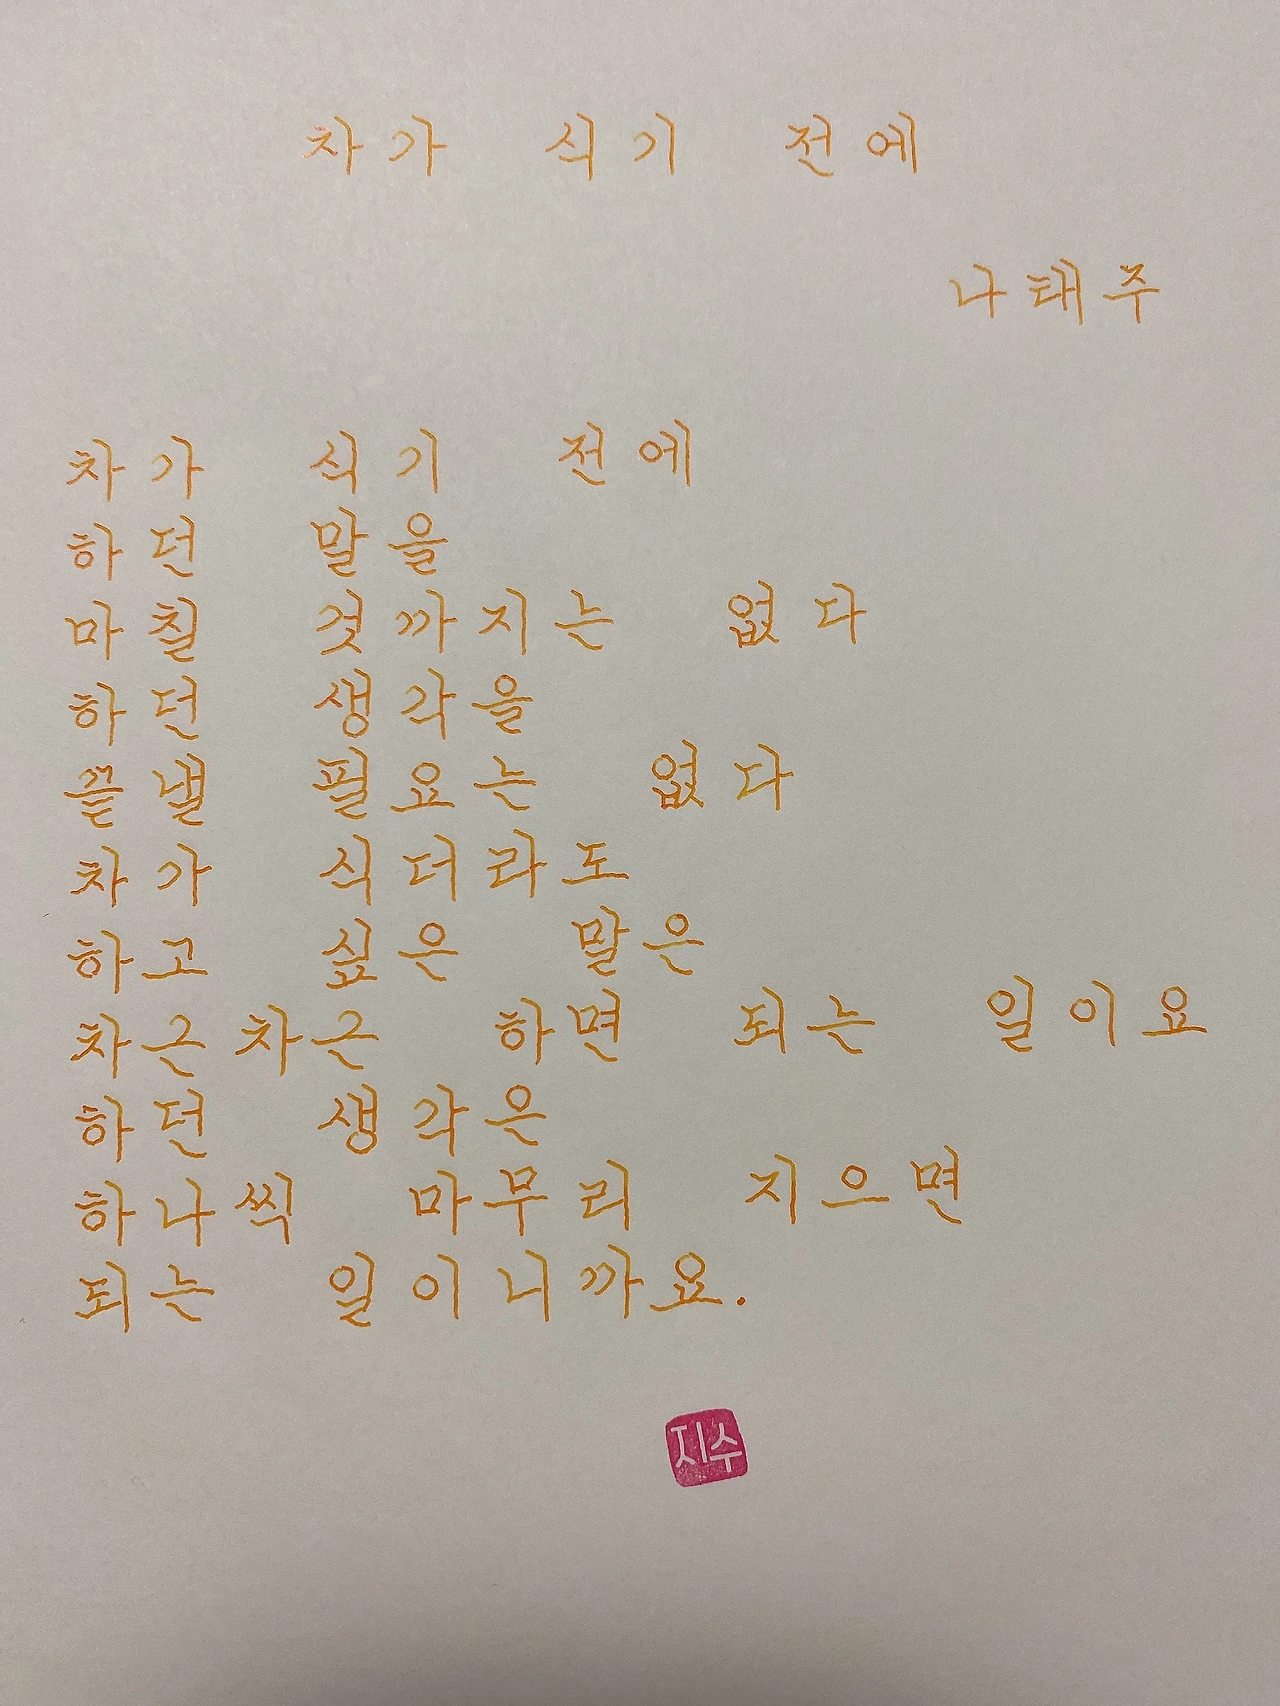 차가 식기 전에
나태주
차가 식기 전에
하던 말을
마칠 것까지는 없다
하던 생각을
끝낼 필요는 없다
차가 식더라도
하고 싶은 말은
차근차근 하면 되는 일이요
하던 생각은
하나씩 마무리 지으면
되는 일이니까요.
지수